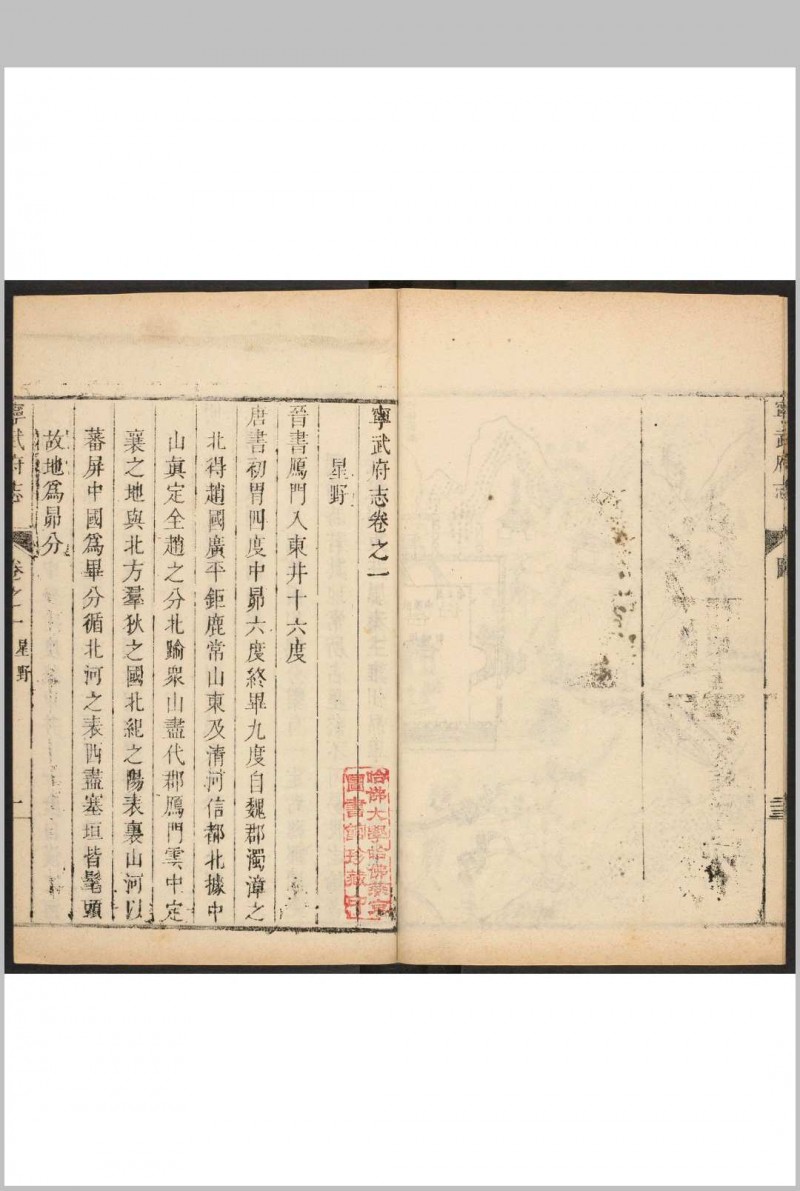 寧武府志
圖
寧武府志卷之一
星野
晉書鴈門入東井十六度
唐書初胃四度中昴六度終畢九度自魏郡濁漳之
北得趙國廣平鉅鹿常山東及清河信都北據中
山真定全趙之分北踰衆山盡代郡鴈門雲中定
襄之地與北方羣狄之國北紀之陽表裏山河以
蕃屏中國爲畢分循北河之表西盡塞垣皆髦頭
故地爲昴分
寧武府志
卷之一 星野
一
哈佛大學哈佛燕京
圖書館珍藏印